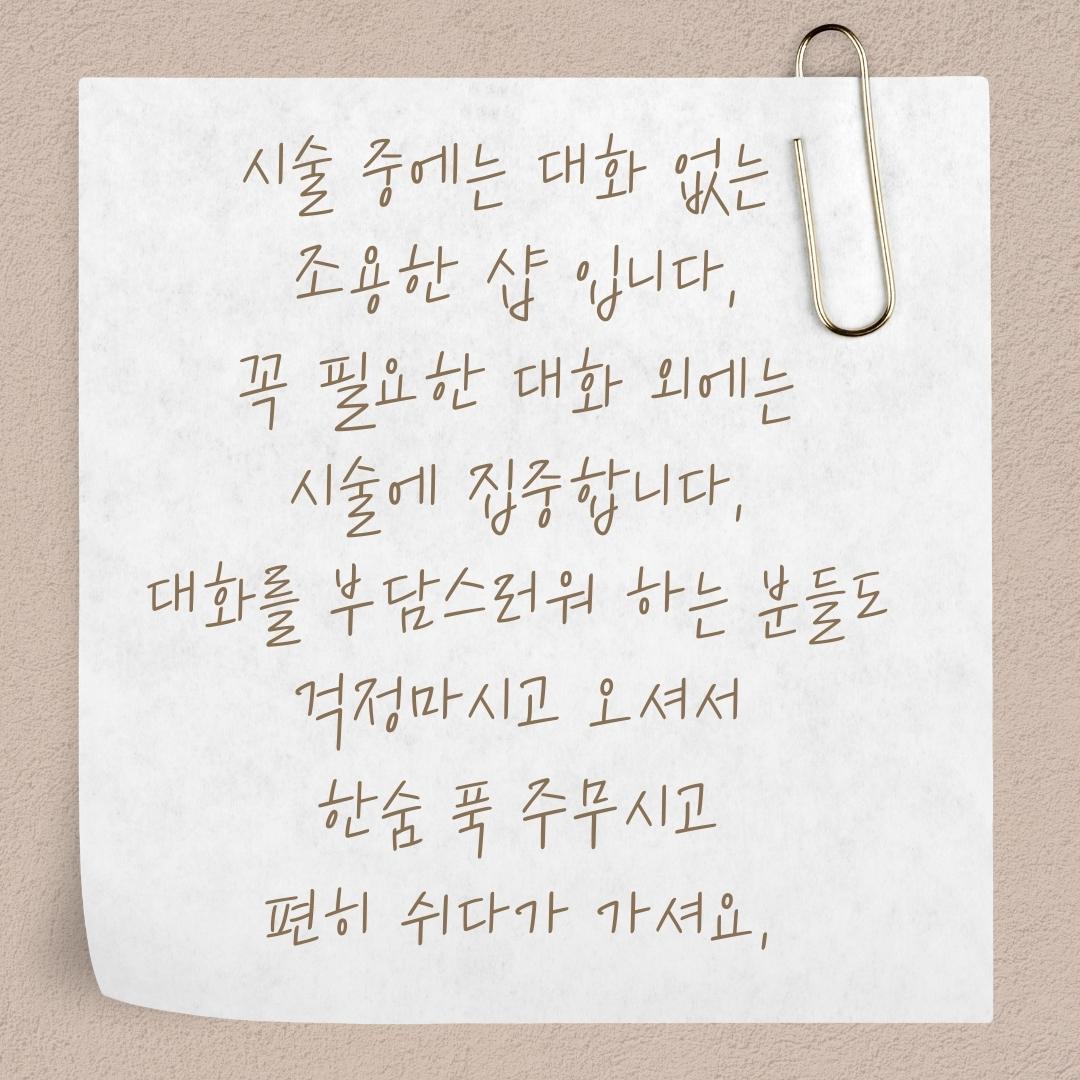 시술 중에는 대화 없는
조용한 샵 입니다,
꼭 필요한 대화 외에는
시술에 집중합니다,
대화를 부담스러워 하는 분들도
걱정마시고 오셔서
한숨 푹 주무시고
편히 쉬다가 가셔요,